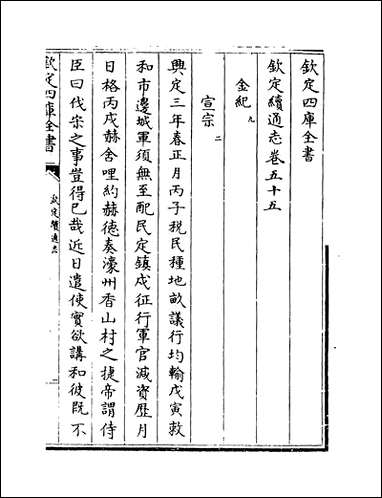 欽定四庫全書
欽定續通志卷五十五
金紀九
宣宗二
興定三年春正月丙子税民種地畝議行均輸戊寅敕
和市邊城軍須無至配民定鎮戍征行軍官減資歷月
日格丙戌赫舍哩約赫徳奏濠州香山村之捷帝謂侍
臣曰伐宋之事豈得已哉近日遣使實欲講和彼既不
欽定四庫全書
欽定續通志